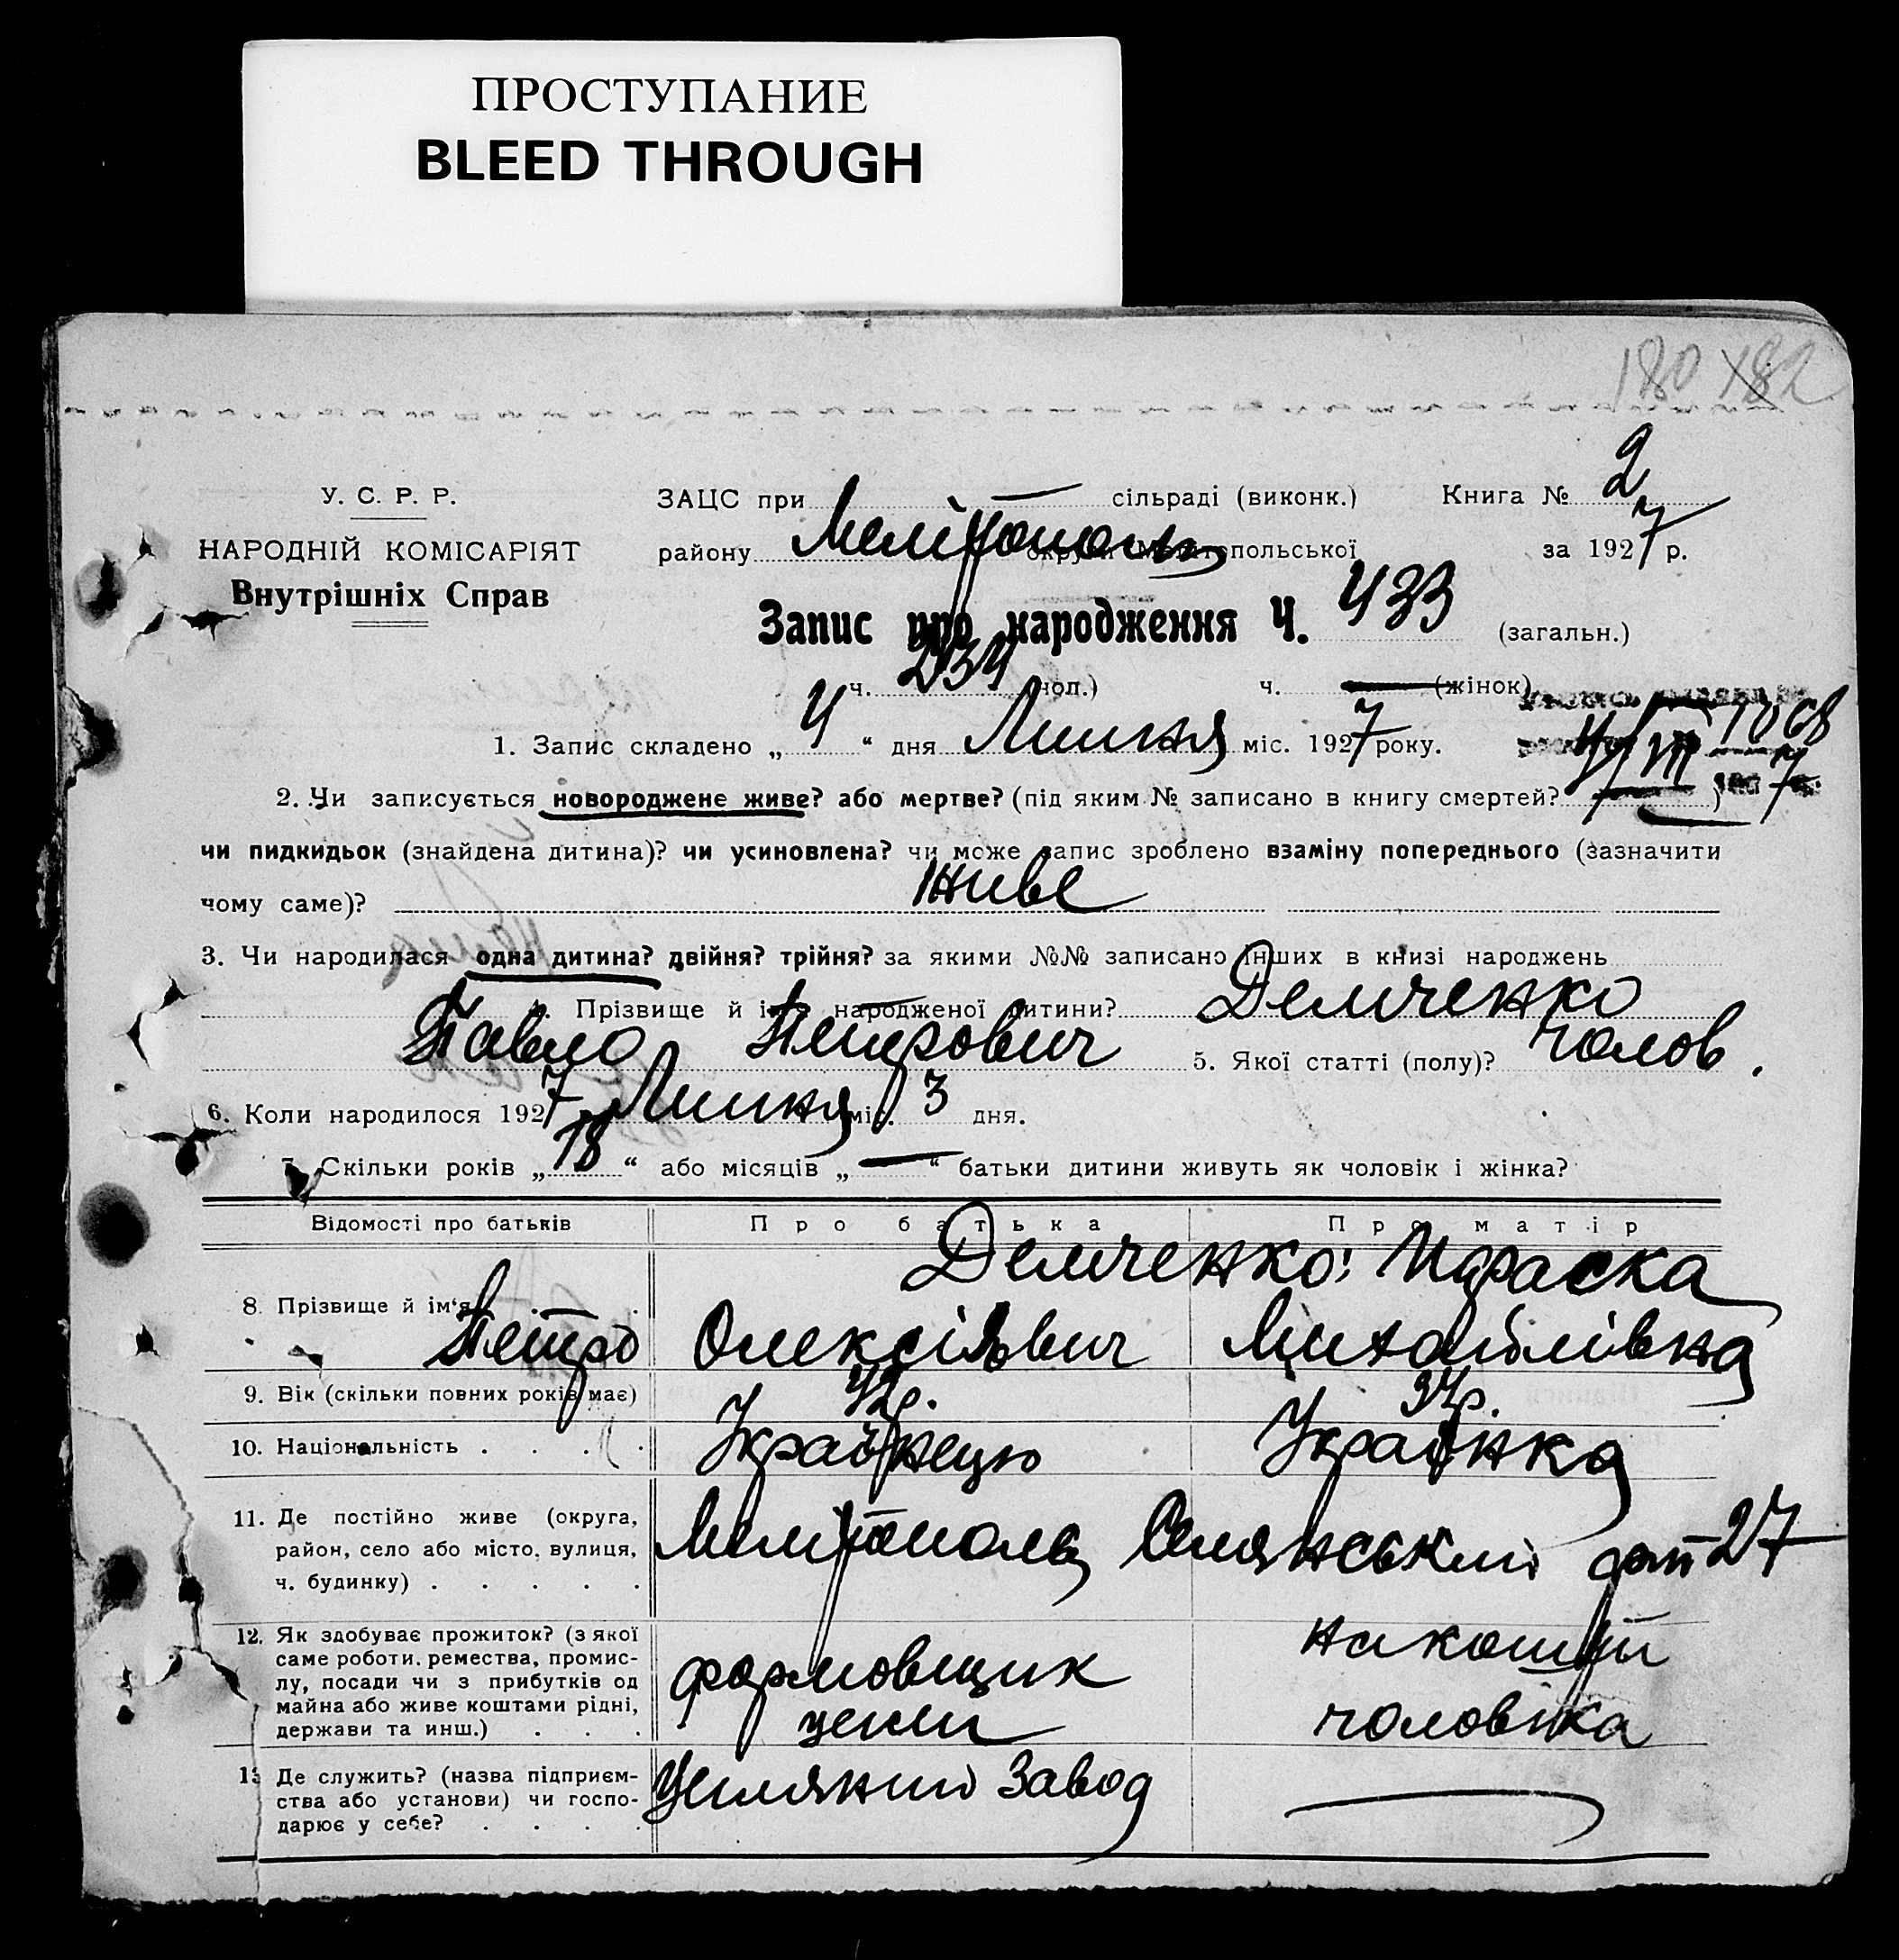 ПРОСТУПАНИЕ
BLEED THROUGH
180 182
У. С. Р. Р.
НАРОДНІЙ КОМІСАРІЯТ
Внутрішніх Справ
ЗАЦС при сільраді (виконк.) Книга № 2
району Мелітополь округи Мелітопольської за 1927 р.
Запис про народження Ч. 433 (загальн.)
ч. 234 чол.) ч. — (жінок)
1. Запис складено „ 4 “ дня Липня міс. 1927 року.
4/VII 1068
7
2. Чи записується новороджене живе? або мертве? (під яким № записано в книгу смертей? )
чи пидкидьок (знайдена дитина)? чи усиновлена? чи може запис зроблено взаміну попереднього (зазначити
чому саме)? живе
3. Чи народилася одна дитина? двійня? трійня? за якими №№ записано інших в книзі народжень
4. Прізвище й ім'я народженої дитини? Демченко
Павло Петрович 5. Якої статті (полу)? чолов.
6. Коли народилося 1927 Липня міс. 3 дня.
7. Скільки років „ 18 “ або місяців „ — “ батьки дитини живуть як чоловік і жінка?
Відомості про батьків Про батька Про матір
Демченко: Параска
8. Прізвище й ім‘я
Петро Олексійович Михайлівна
9. Вік (скільки повних років має) 42р. 37р.
10. Національність . . . . Українець Українка
11. Де постійно живе (округа,
район, село або місто, вулиця,
ч. будинку) . . . . .
Мелітополь Селянський 27
12. Як здобуває прожиток? (з якої
саме роботи, ремества, промис-
лу, посади чи з прибутків од
майна або живе коштами рідні,
держави та инш.) . . .
формовщик
цегли
на кошті
чоловіка
13 Де служить? (назва підприєм-
ства або установи) чи госпо-
дарює у себе? . . . .
Цегляний завод